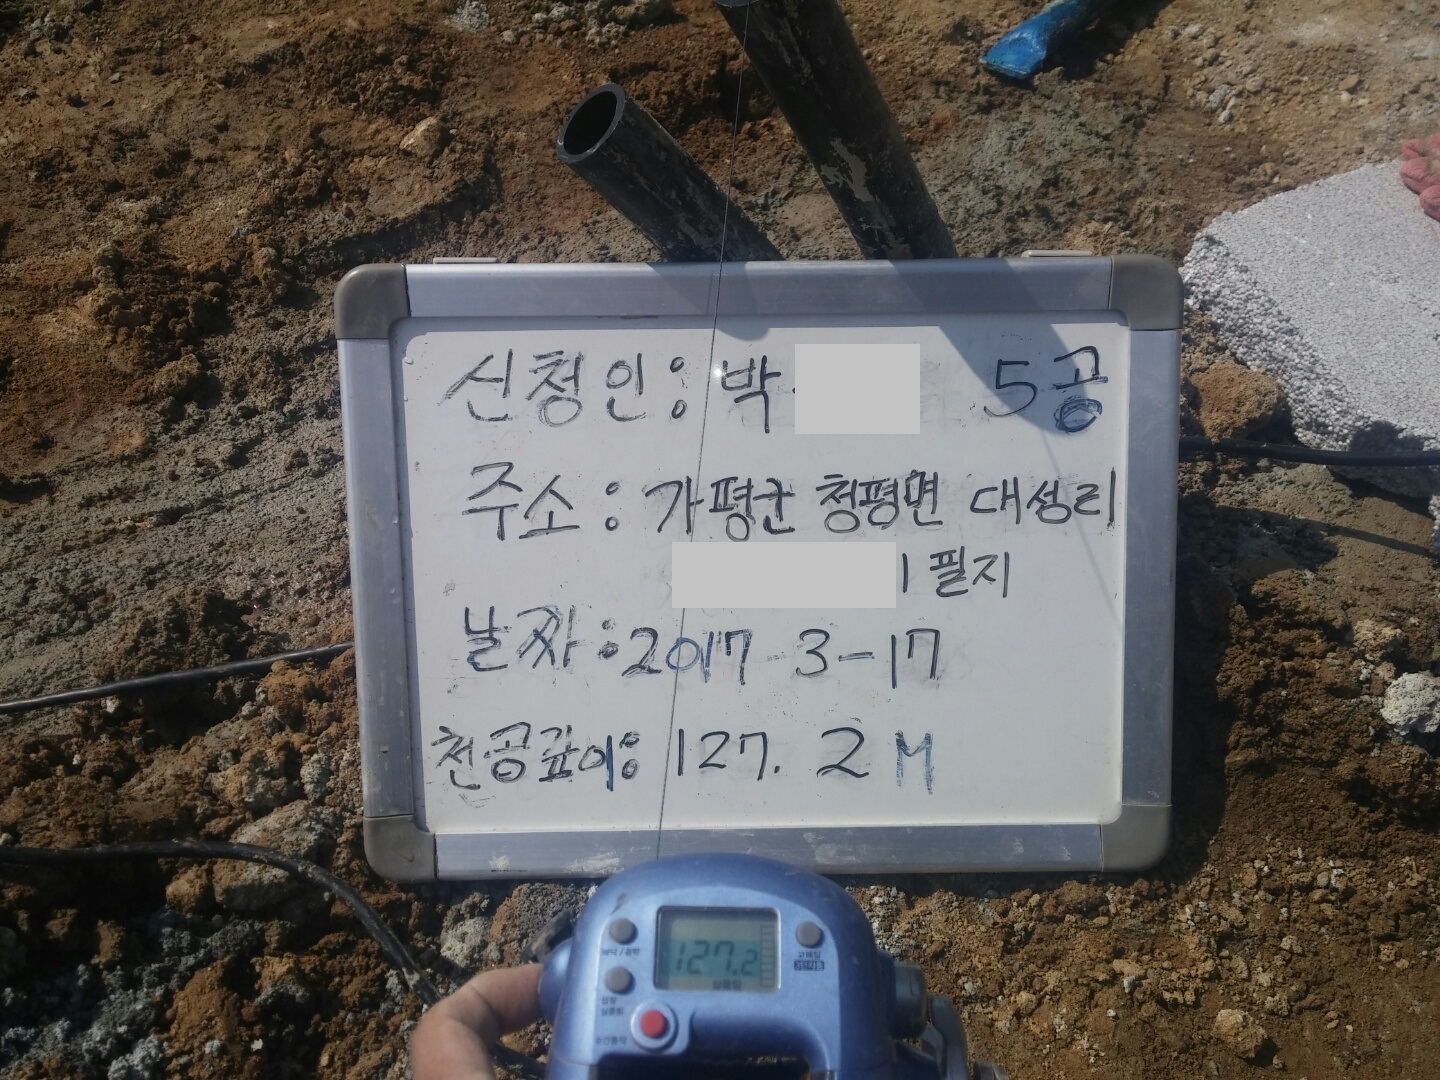 신청인: 박 5공
주소: 가평군 청평면 대성리
1필지
날짜: 2017-3-17
천공깊이: 127.2M
127.2